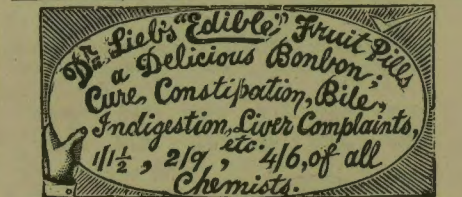 Dr Lieb's "Edible" Fruit Pills
a Delicious Bonbon;
Cure Constipation, Bile,
Indigestion, Liver Complaints,
etc.
1/1½, 2/9, 4/6, of all
Chemists.